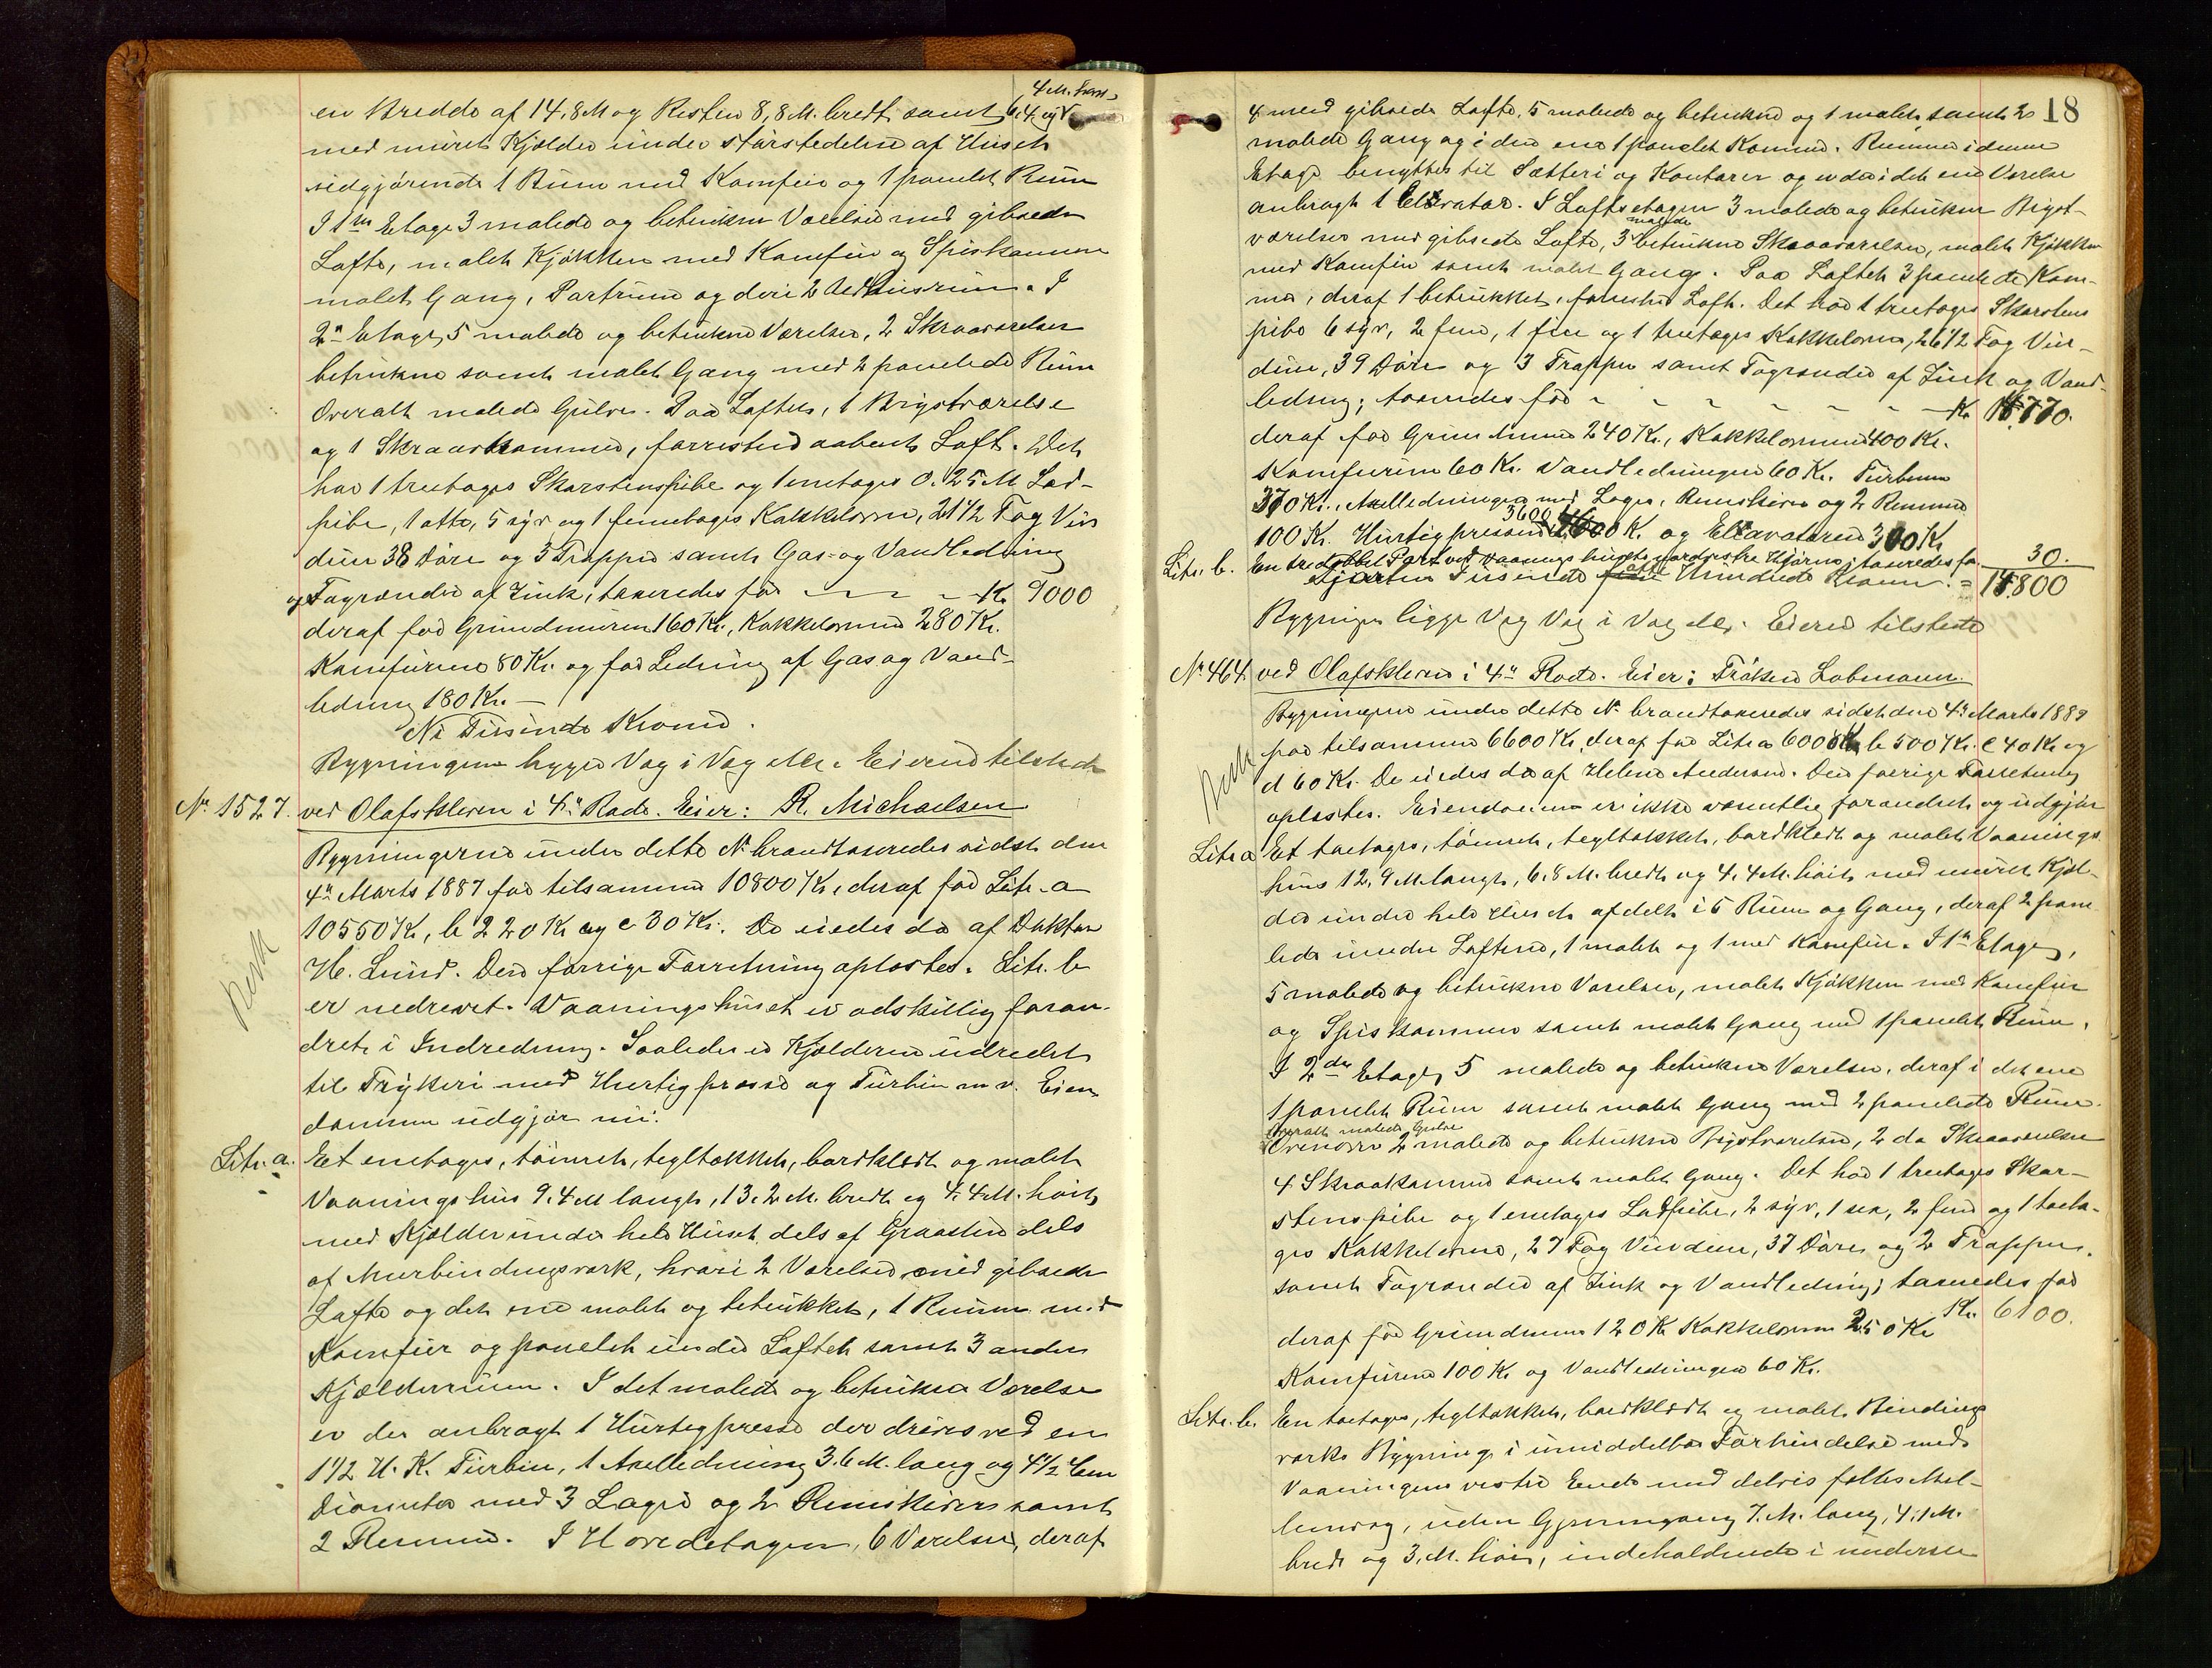 en Bredde af 14,8 M og Resten 8,8 M. bredt samt 6,4 og V
4 M.
med muret Kjælder under størstedelen af Huset
indgjørende 1 Rum med Komfur og 1 panelet Rum
I 1ste Etage 3 malede og betrukne Værelser med gibsede
Lofte, malet Kjøkken med Komfur og Spiskammer
malet Gang, Portrum og deri 2 Aedhusrum. I
2n Etage, 5 malede og betrukne Værelser, 2 Skraaværelser
betrukne samt malet Gang med 2 panelede Rum
Overalt malede Gulve. Paa Loftet, 1 Brystværelse
og 1 Skraaskammer, forresten aabent Loft. Det
har 1 treetages Skorstenspibe og 1 enetages 0.25 M Lod-
pibe, 1 otte, 5 syv og 1 femetages Kakkelovne, 21 1/2 Fag Vin
duer 38 Døre og 3 Trapper samt Gas- og Vandledning
og Tagrender af Zink, taxeredes for — — — Kr. 9000
deraf for Grundmuren 160 Kr., Kakkelovnene 280 Kr.
Komfurene 80 Kr. og for Ledning af Gas og Vand-
ledning 180 Kr. —
Ni Tusinde Kroner.
Bygningerne bygger Væg i Væg Eieren tilstede
No 1527. ved Olafskleven i 4de Rode. Eier: R. Michaelsen
Bygningerne under dette No brandtaxeredes sidst den
4de Marts 1887 for tilsammen 10800 Kr., deraf for Litr. a
10550 Kr, b 220 Kr og c 30 Kr. De eiedes da af Doktor
H. Lund. Den forrige Forretning oplæstes. Litr. b
er nedrevet. Vaaningshuset er adskillig foran-
dret i Indredning. Saaledes er Kjælderen indredet
til Trykkeri med Hurtigpresse og Turbin m. v. Eien
dommen udgjør nu:
Litr. a. Et enetages, tømret, tegltækket, bordklædt og malet
Vaaningshus 9.4 M langt, 13.2 M. bredt og 4.4 M. høit
med Kjælder under hele Huset dels af Graasten dels
af Murbindingsværk, hvori 2 Værelser med gibsede
Lofte og det ene malet og betrukket, 1 Rum med
Komfur og panelet under Loftet samt 3 andre
Kjælderrum. I det malede og betrukne Værelse
er der anbragt 1 Hurtigpresse der drives ved en
1 1/2 H. K. Turbin, 1 Axelledning 3.6 M. lang og 4 1/2 Cem
Diameter med 3 Lagre og 2 Remskiver samt
2 Remme. I Hovedetagen, 6 Værelser, deraf
18
4 med gibsede Lofte, 5 malede og betrukne og 1 malet, samt 2
malede Gang og i den ene 1 panelet Kammer. Rummene i denne
Etage benyttes til Sætteri og Kontorer og er der i det ene Værelse
anbragt 1 Elevator. I Loftsetagen 3 malede og betrukne Bryst-
værelser med gibsede Lofte, 3 malede betrukne Skraaværelser, malet Kjøkken
med Komfur samt malet Gang. Paa Loftet 3 panelede Kam-
mer, deraf 1 betrukket, forresten Loft. Det har 1 treetages Skorstens
pibe 6 syv, 2 fem, 1 fire og 1 treetages Kakkelovne, 26 1/2 Fag Vin-
duer, 39 Døre og 3 Trapper samt Tagrender af Zink og Vand-
ledning; taxeredes for — — — — — Kr. 14770.
deraf for Grundmuren 240 Kr., Kakkelovnene 400 Kr.
Komfurene 60 Kr. Vandledningen 60 Kr. Turbinen
370 Kr., Axelledningen med Lagre, Remskiver og 2 Remme
100 Kr. Hurtigpressen 3600 Kr. og Elevatoren 300 Kr
Litr. b. En tredobbel Port ved Vaaningshusets nordvestre Hjørne; taxeredes for 30.
Fjorten Tusinde otte Hundrede Kroner. = 14800
Bygningen ligger Væg Væg i Væg Eieren tilstede
No 464. ved Olafskleven i 4de Rode. Eier: Frøken Lobmann
Bygningerne under dette No brandtaxeredes sidst den 4de Marts 1889
for tilsammen 6600 Kr, deraf for Litr a 6000 Kr, b 500 Kr. c 40 Kr og
d 60 Kr. De eiedes da af Helene Andersen. Den forrige Forretning
oplæstes. Eiendommen er ikke væsentlig forandret og udgjør
Litr a Et toetages, tømret, tegltækket, bordklædt og malet Vaanings
hus 12.9 M. langt, 6.8 M. bredt og 4.4 M. høit med muret Kjæl-
der under hele Huset afdelt i 5 Rum og Gang, deraf 2 pane
lede under Loftene, 1 malet og 1 med Komfur. I 1ste Etage,
5 malede og betrukne Værelser, malet Kjøkken med Komfur
og Spiskammer samt malet Gang med 1 panelet Rum.
I 2den Etage, 5 malede og betrukne Værelser, deraf i det ene
1 panelet Rum samt malet Gang med 2 panelede Rum.
Overalt malede Gulve
Ovenover 2 malede og betrukne Brystværelser, 2 do Skraaværelser
4 Skraakammer samt malet Gang. Det har 1 treetages Skor-
stenspibe og 1 enetages Lodpibe, 2 syv, 1 sex, 2 fem og 1 toeta-
ges Kakkelovne, 27 Fag Vinduer, 37 Døre og 2 Trapper.
samt Tagrender af Zink og Vandledning; taxeredes for
Kr. 6100.
deraf for Grundmuren 120 Kr Kakkelovnene 250 Kr
Komfurene 100 Kr og Vandledningen 60 Kr.
Litr. b. En toetages, tegltækket, bordklædt og malet Bindings
værks Bygning, i umiddelbar Forbindelse med
Vaaningens vestre Ende med delvis fælles Mel-
lemvæg, uden Gjennemgang 7. M. lang, 4.1 M.
bred og 3. M. høi, indeholdende i underste